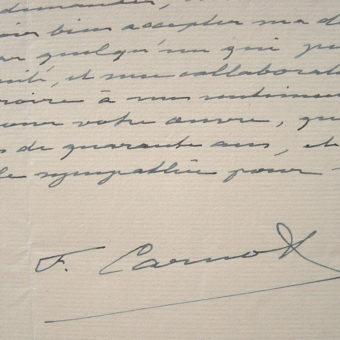 demander,
oir bien accepter ma d
ar quelqu'un qui pu
ité, et une collaborat
croire à mes sentimen
pour votre œuvre, qu
s de quarante ans, et
le sympathie pour
F. Carnot